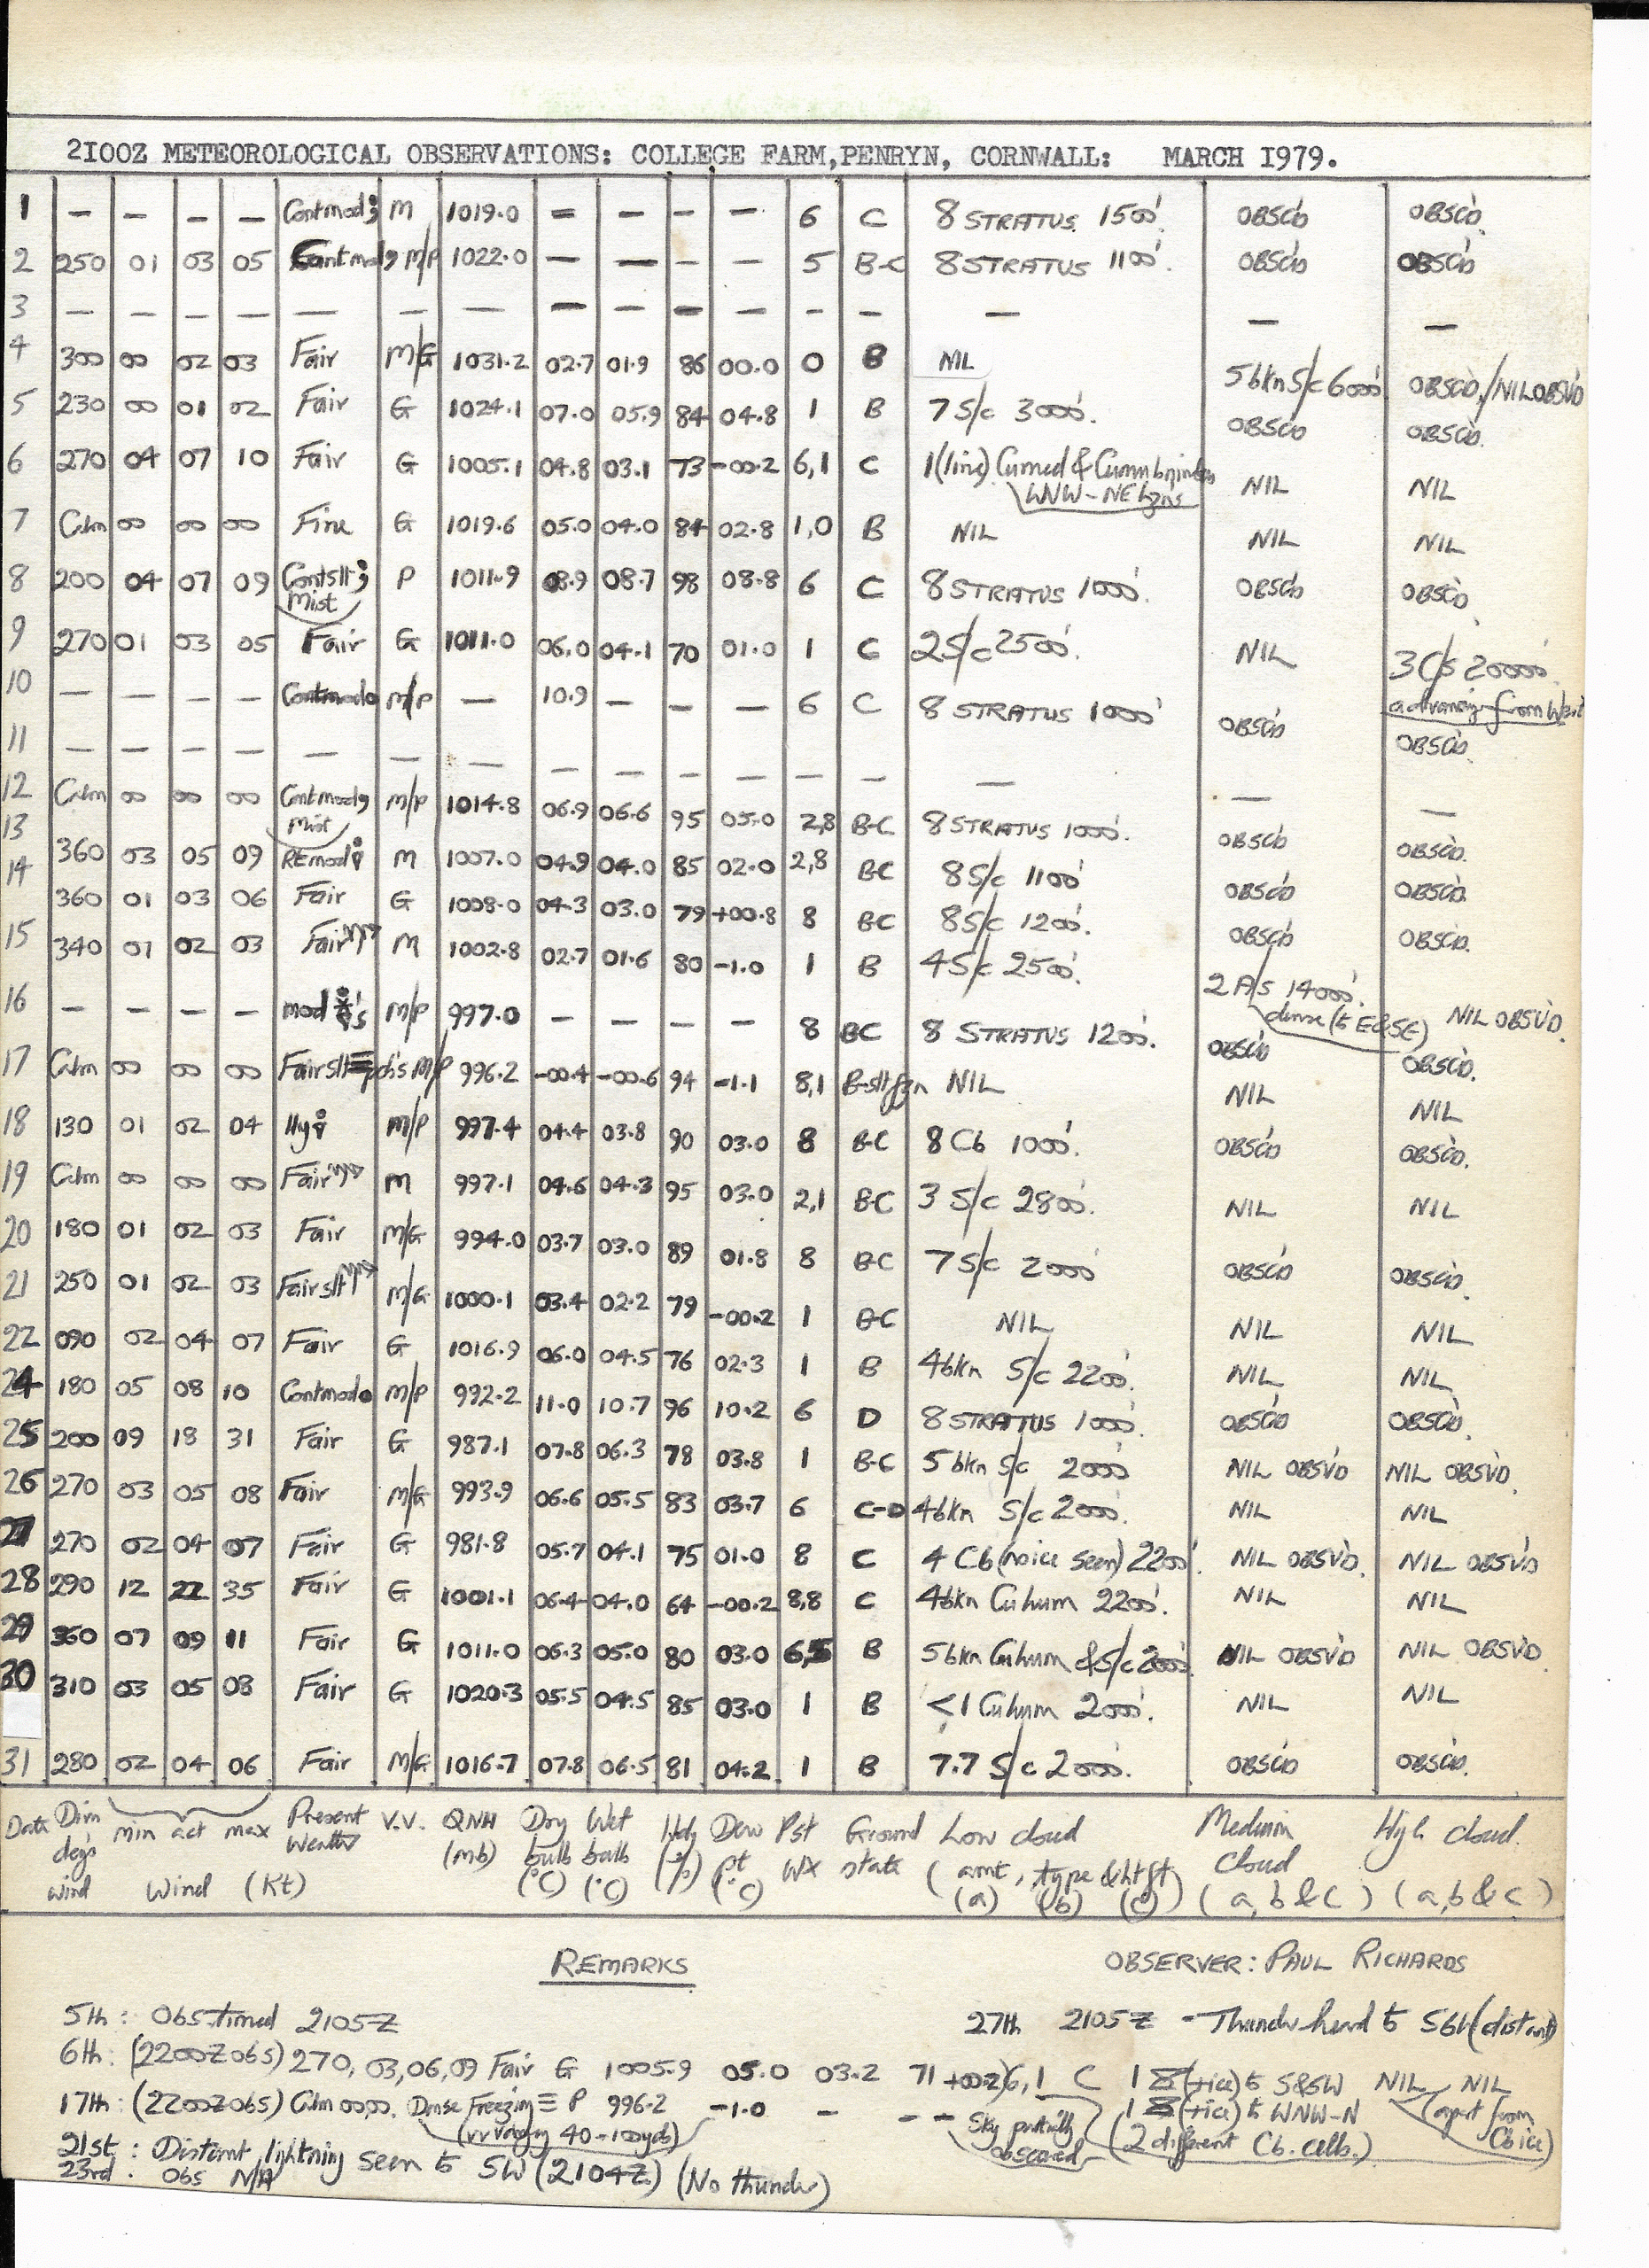 2I00Z METEOROLOGICAL OBSERVATIONS: COLLEGE FARM,PENRYN, CORNWALL: MARCH I979.
1 – – – – Contmod M 1019.0 – – – – 6 C 8 STRATUS 1500'. OBSC'D OBSC'D.
2 250 01 03 05 Contmod M/P 1022.0 – – – – 5 B-C 8 STRATUS 1100'. OBSC'D OBSC'D
3 – – – – – – – – – – – – – – – –
4 300 00 02 03 Fair M/G 1031.2 02.7 01.9 86 00.0 0 B NIL 5bkn S/c 6000' OBSC'D/NIL OBSV'D
5 230 00 01 02 Fair G 1024.1 07.0 05.9 84 04.8 1 B 7 S/c 3000'. OBSC'D OBSC'D.
6 270 04 07 10 Fair G 1005.1 04.8 03.1 73 -00.2 6,1 C 1(line) Cumed & NIL NIL
WNW-NE hzns
7 Calm 00 00 00 Fine G 1019.6 05.0 04.0 84 02.8 1,0 B NIL NIL NIL
8 200 04 07 09 Contslt P 1011.9 08.9 08.7 98 08.8 6 C 8 STRATUS 1000'. OBSC'D OBSC'D
Mist
9 270 01 03 05 Fair G 1011.0 06.0 04.1 70 01.0 1 C 2 S/c 2500'. NIL 3 C/s 20000'
advancing from West
10 – – – – Contmod M/P – 10.9 – – – 6 C 8 STRATUS 1000' OBSC'D OBSC'D
11 – – – – – – – – – – – – – – – –
12 Calm 00 00 00 Contmod M/P 1014.8 06.9 06.6 95 05.0 2,8 B-C 8 STRATUS 1000'. OBSC'D OBSC'D.
Mist
13 360 03 05 09 REmod M 1007.0 04.9 04.0 85 02.0 2,8 BC 8 S/c 1100' OBSC'D OBSC'D.
14 360 01 03 06 Fair G 1008.0 04.3 03.0 79 +00.8 8 BC 8 S/c 1200'. OBSC'D OBSC'D.
15 340 01 02 03 Fair M 1002.8 02.7 01.6 80 -1.0 1 B 4 S/c 2500'. 2 A/s 14000'. NIL OBSV'D.
dense (to E&SE)
16 – – – – mod M/P 997.0 – – – – 8 BC 8 STRATUS 1200'. OBSC'D OBSC'D.
17 Calm 00 00 00 Fair slt≡pch's M/P 996.2 -00.4 -00.6 94 -1.1 8,1 B-sltfzn NIL NIL NIL
18 130 01 02 04 Hy M/P 997.4 04.4 03.8 90 03.0 8 B-C 8 Cb 1000'. OBSC'D OBSC'D.
19 Calm 00 00 00 Fair M 997.1 04.6 04.3 95 03.0 2,1 B-C 3 S/c 2800'. NIL NIL
20 180 01 02 03 Fair M/G 994.0 03.7 03.0 89 01.8 8 B-C 7 S/c 2000' OBSC'D OBSC'D.
21 250 01 02 03 Fair slt M/G 1000.1 03.4 02.2 79 -00.2 1 B-C NIL NIL NIL
22 090 02 04 07 Fair G 1016.9 06.0 04.5 76 02.3 1 B 4bkn S/c 2200'. NIL NIL
24 180 05 08 10 Contmod M/P 992.2 11.0 10.7 96 10.2 6 D 8 STRATUS 1000'. OBSC'D OBSC'D.
25 200 09 18 31 Fair G 987.1 07.8 06.3 78 03.8 1 B-C 5 bkn S/c 2000' NIL OBSV'D NIL OBSV'D.
26 270 03 05 08 Fair M/G 993.9 06.6 05.5 83 03.7 6 C-D 4bkn S/c 2000'. NIL NIL
27 270 02 04 07 Fair G 981.8 05.7 04.1 75 01.0 8 C 4 Cb (no ice seen) 2200'. NIL OBSV'D. NIL OBSV'D
28 290 12 22 35 Fair G 1001.1 06.4 04.0 64 -00.2 8,8 C 4bkn Cuhum 2200'. NIL NIL
29 360 07 09 11 Fair G 1011.0 06.3 05.0 80 03.0 6,5 B 5bkn Cuhum & S/c 2000' NIL OBSV'D NIL OBSV'D
30 310 03 05 08 Fair G 1020.3 05.5 04.5 85 03.0 1 B <1 Cuhum 2000'. NIL NIL
31 280 02 04 06 Fair M/G 1016.7 07.8 06.5 81 04.2 1 B 7.7 S/c 2000'. OBSC'D OBSC'D.
Date Dirn min act max Present V.V. QNH Dry Wet Hdy Dew Pst Ground Low cloud Medium High cloud.
deg's Weather (mb) bulb bulb (%) pt WX state (amt, type & ht ft) Cloud
wind Wind (Kt) (°C) (°C) (°C) (a) (b) (c) (a, b & c) (a, b & c)
REMARKS OBSERVER: PAUL RICHARDS
5th: Obs timed 2105Z 27th 2105Z - Thunder heard to SW (distant)
6th: (2200Z obs) 270, 03,06,09 Fair G 1005.9 05.0 03.2 71 +00.2 6,1 C 1 (+ice) to S&SW NIL NIL
1 (+ice) to WNW-N (apart from Cb ice)
(2 different Cb. cells.)
17th: (2200Z obs) Calm 00,00. Dense Freezing ≡ P 996.2 -1.0 – – – Sky partially obscured
(vv varying 40-100yds)
21st: Distant lightning seen to SW (2104Z) (No thunder)
23rd. Obs N/A